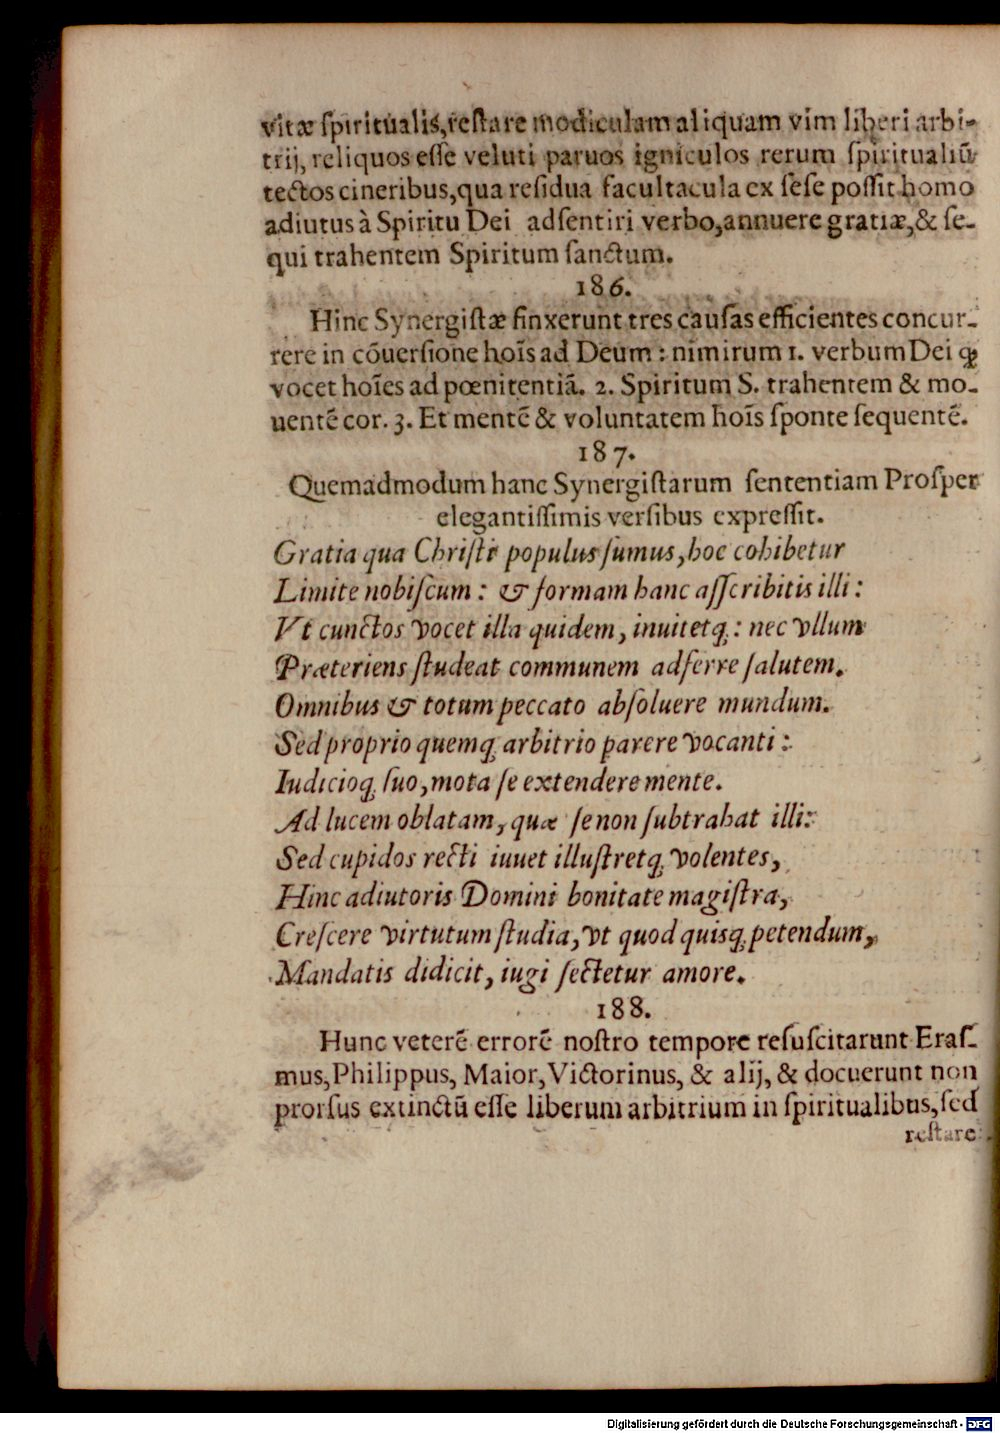 vitæ ſpiritualis, reſtare modiculam aliquam vim liberi arbi-
trij, reliquos eſſe veluti paruos igniculos rerum ſpiritualiū
tectos cineribus, qua reſidua facultacula ex ſeſe poſſit homo
adiutus à Spiritu Dei adſentiri verbo, annuere gratiæ, & ſe-
qui trahentem Spiritum ſanctum.
186.
Hinc Synergiſtæ finxerunt tres cauſas efficientes concur-
rere in cōuerſione hoīs ad Deum: nimirum 1. verbum Dei ꝙ
vocet hoīes ad pœnitentiā. 2. Spiritum S. trahentem & mo-
uentē cor. 3. Et mentē & voluntatem hoīs ſponte ſequentē.
187.
Quemadmodum hanc Synergiſtarum ſententiam Proſper
elegantiſſimis verſibus expreſſit.
Gratia qua Chriſti populus ſumus, hoc cohibetur
Limite nobiſcum: & formam hanc aſſcribitis illi:
Vt cunctos vocet illa quidem, inuitetq́;: nec vllum
Præteriens ſtudeat communem adferre ſalutem.
Omnibus & totum peccato abſoluere mundum.
Sed proprio quemq́; arbitrio parere vocanti:
Iudicioq́; ſuo, mota ſe extendere mente.
Ad lucem oblatam, quæ ſe non ſubtrahat illi:
Sed cupidos recti iuuet illuſtretq́; volentes,
Hinc adiutoris Domini bonitate magiſtra,
Creſcere virtutum ſtudia, vt quod quisq́; petendum,
Mandatis didicit, iugi ſectetur amore.
188.
Hunc veterē errorē noſtro tempore reſuſcitarunt Eraſ-
mus, Philippus, Maior, Victorinus, & alij, & docuerunt non
prorſus extinctū eſſe liberum arbitrium in ſpiritualibus, ſed
reſtare
Digitalisierung gefördert durch die Deutsche Forschungsgemeinschaft - DFG